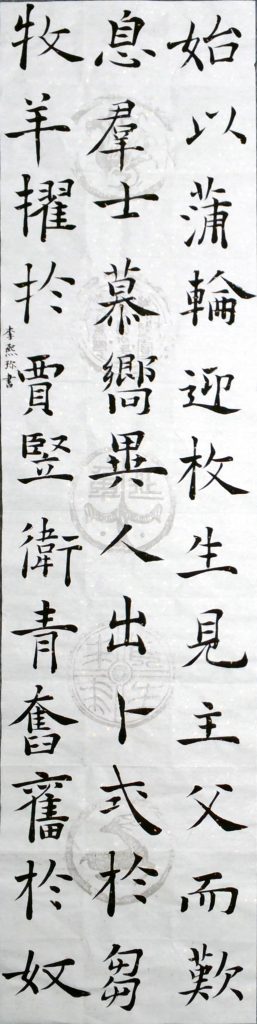 始以蒲輪迎枚生見主父而歎
息羣士慕嚮異人出卜式於芻
牧羊擢於賈竪衛青奮舊於奴
李熙珎書